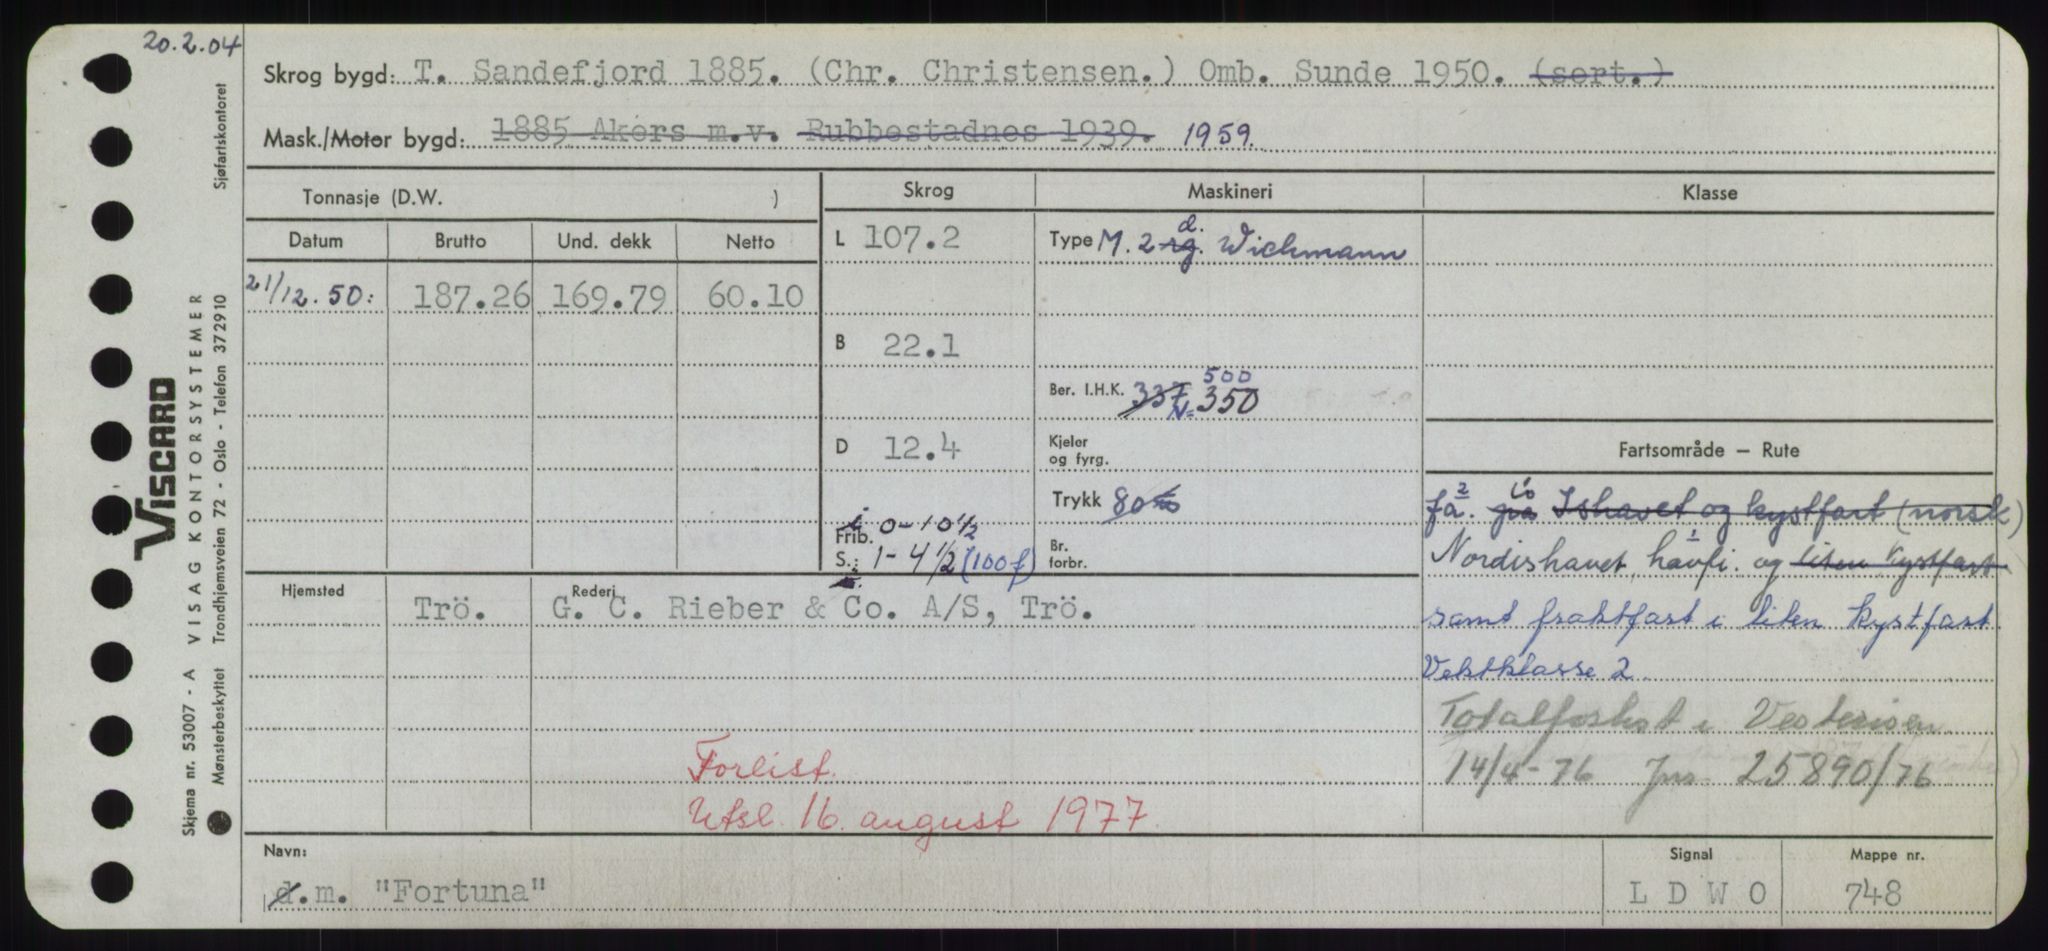 20.2.04
Skrog bygd: T. Sandefjord 1885. (Chr. Christensen.) Omb. Sunde 1950. (sert.)
Mask./Motor bygd: 1885 Akers m.v. Rubbestadnes 1939. 1959.
Tonnasje (D.W. )
Skrog
Maskineri
Klasse
Datum Brutto Und. dekk Netto
21/12.50: 187.26 169.79 60.10
L 107.2
B 22.1
D 12.4
i 0-10½
Frib.
S.: 1-4½ (100f)
d.
Type M. 2 rg. Wichmann
500
Ber. I.H.K. 337 N= 350
Kjeler og fyrg.
Trykk 80
Br. forbr.
Fartsområde – Rute
fa². Ishavet og kystfart (norsk)
Nordishavet, havfi. og liten kystfart
samt fraktfart i liten kystfart.
Vektklasse 2.
Totalforlist i Vesterisen
14/4-76 Jnr. 25890/76
Hjemsted Trö.
Rederi G. C. Rieber & Co. A/S, Trö.
Forlist.
Utsl. 16. august 1977.
Navn: d.m. "Fortuna"
Signal L D W O
Mappe nr. 748
VISCARD
Skjema nr. 53007 - A VISAG KONTORSYSTEMER
Mønsterbeskyttet Trondhjemsveien 72 - Oslo - Telefon 372910
Sjøfartskontoret